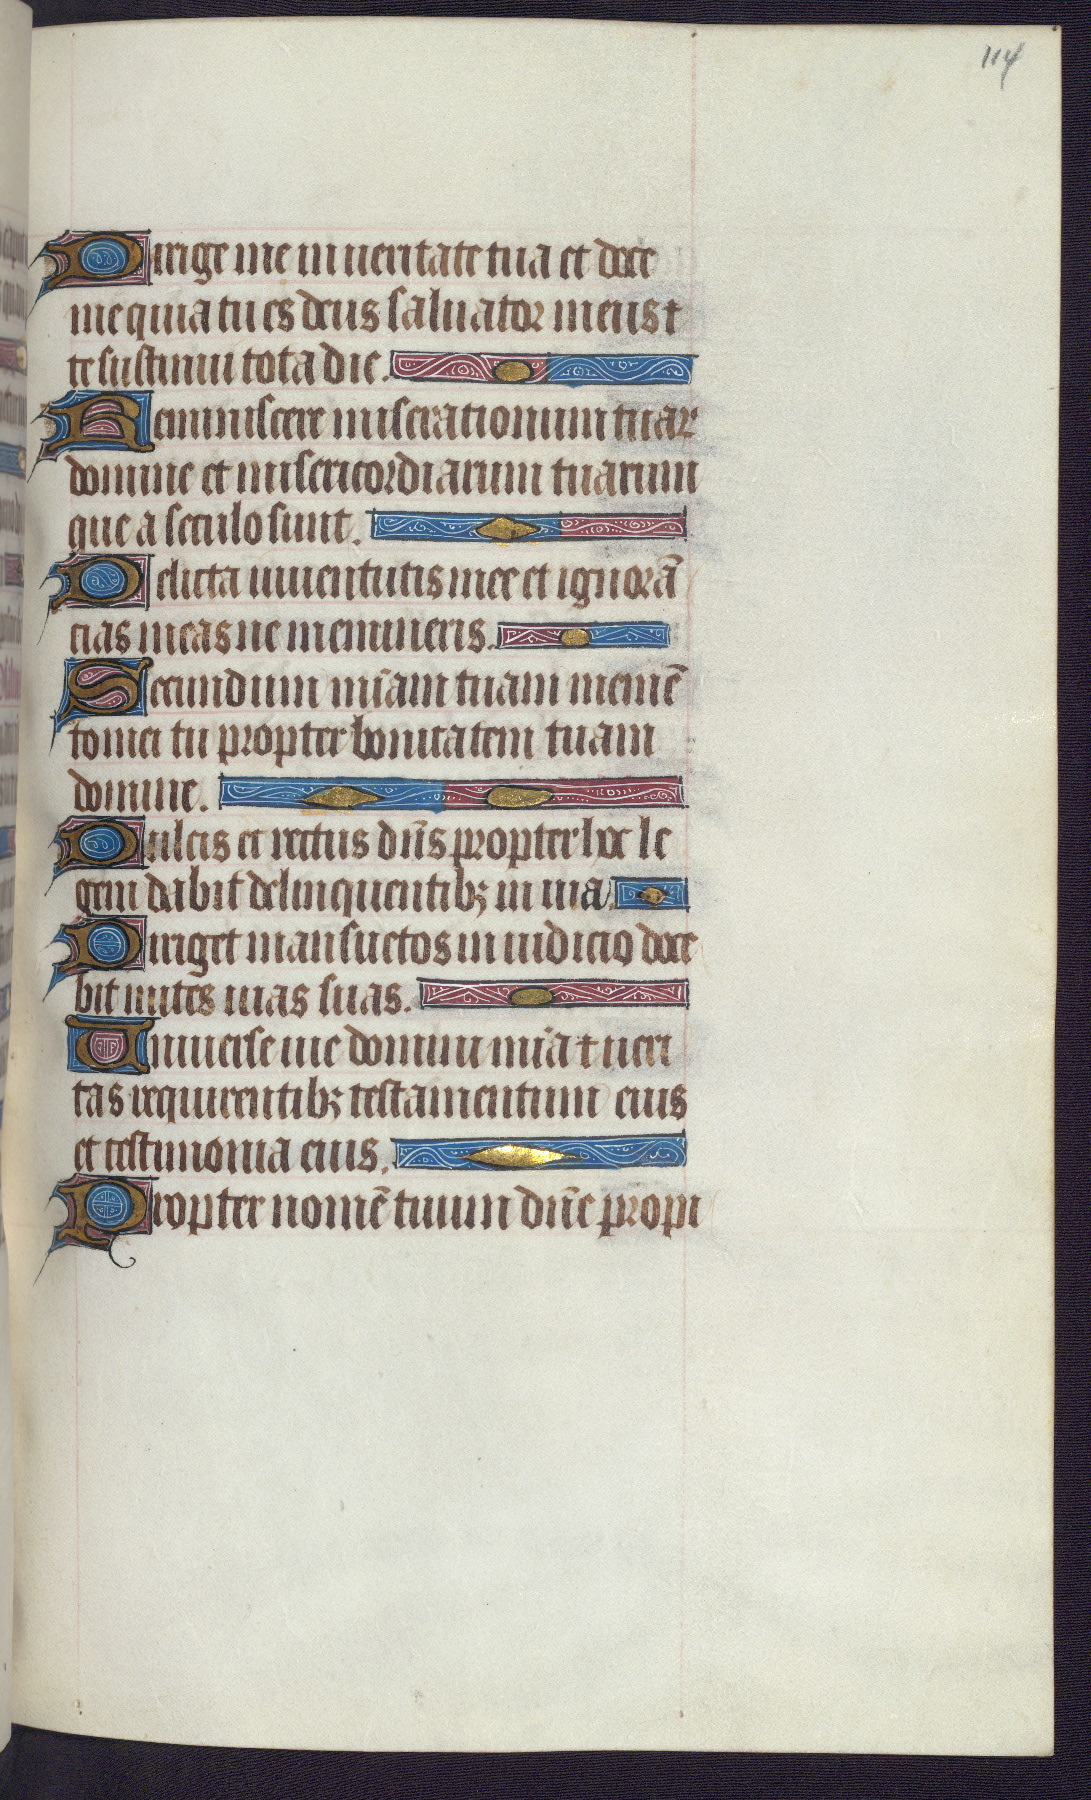 114
Dirige me in ueritate tua et doce
me quia tu es deus saluator meus ⁊
te sustinui tota die.
Reminiscere miserationum tuar
domine et misericordiarum tuarum
que a seculo sunt.
Delicta iuuentutis mee et ignorā
cias meas ne memineris.
Secundum mīam tuam memē
to mei tu propter bonitatem tuam
domine.
Dulcis et rectus dn̄s propter hoc le
gem dabit delinquentibꝫ in uia
Diriget mansuetos in iudicio doce
bit mites uias suas.
Uniuerse uie domini mīa ⁊ ueri
tas requirentibꝫ testamentum eius
et testimonia eius.
Propter nomē tuum dn̄e propi